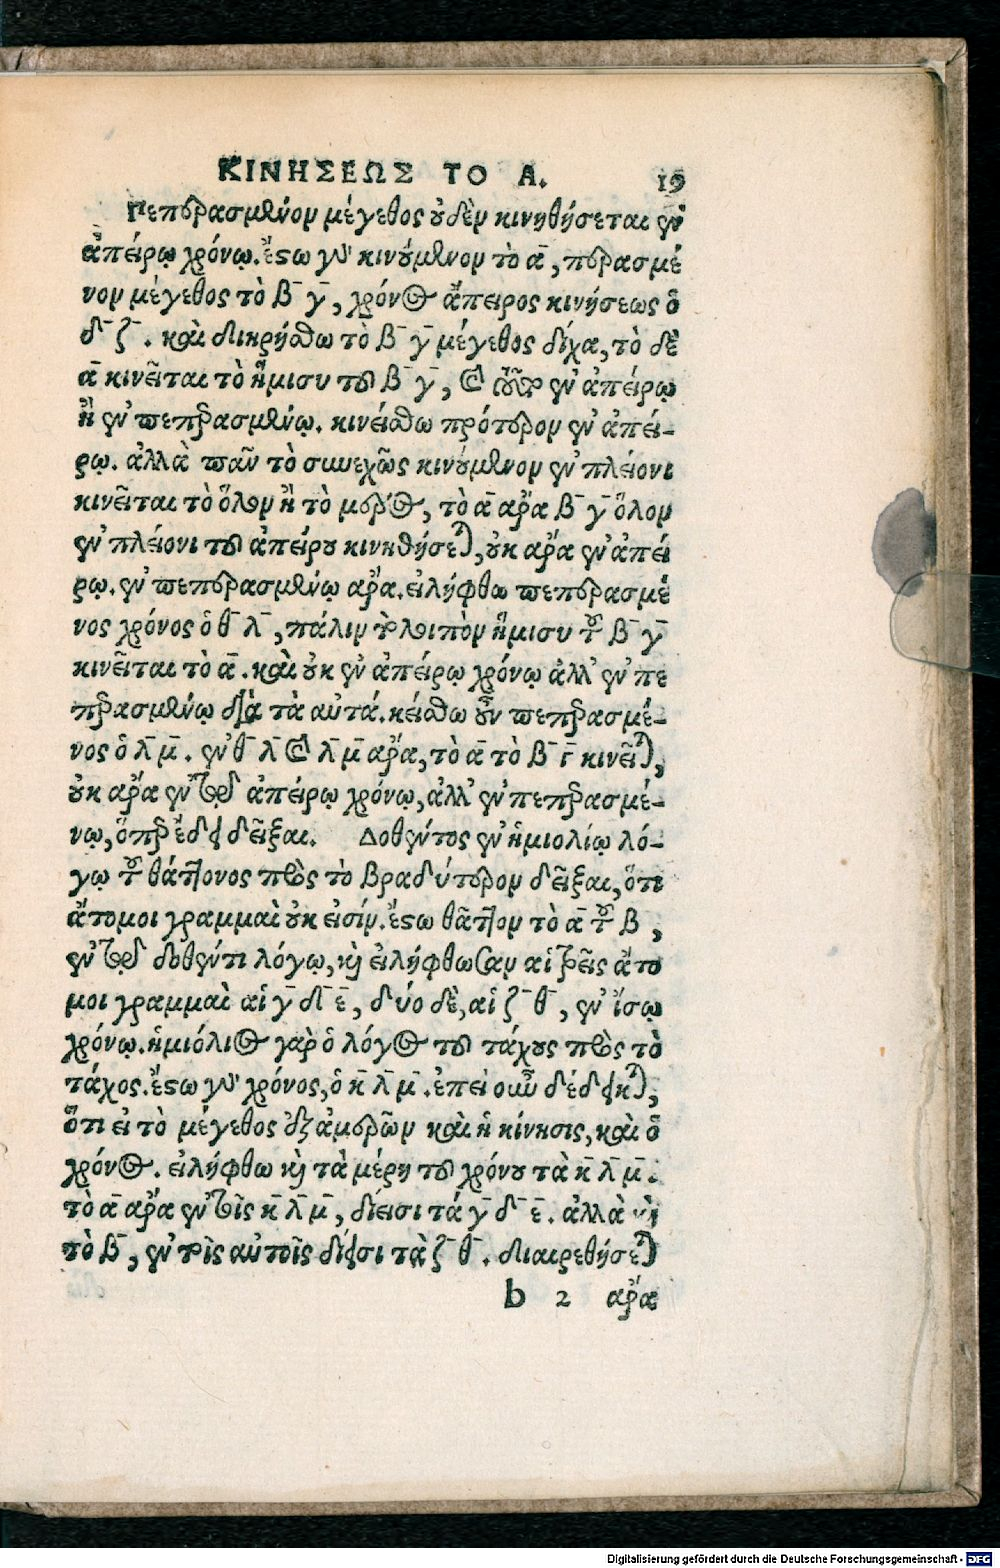 ΚΙΝΗΣΕΩΣ ΤΟ Α. 19
Πεπερασμένον μέγεθος οὐδὲν κινηθήσεται ἐν
ἀπείρῳ χρόνῳ. ἔστω γὰρ κινούμενον τὸ α̅, περασμέ
νον μέγεθος τὸ β̅ γ̅, χρόνος ἄπειρος κινήσεως ὁ
δ̅ ζ̅. καὶ διῃρήσθω τὸ β̅ γ̅ μέγεθος δίχα, τὸ δὲ
α̅ κινεῖται τὸ ἥμισυ τοῦ β̅ γ̅, καὶ ἤτοι ἐν ἀπείρῳ
ἢ ἐν πεπερασμένῳ. κινείσθω πρότερον ἐν ἀπεί-
ρῳ. ἀλλὰ πᾶν τὸ συνεχῶς κινούμενον ἐν πλείονι
κινεῖται τὸ ὅλον ἢ τὸ μέρος, τὸ α̅ ἄρα β̅ γ̅ ὅλον
ἐν πλείονι τοῦ ἀπείρου κινηθήσεται, οὐκ ἄρα ἐν ἀπεί
ρῳ. ἐν πεπερασμένῳ ἄρα. εἰλήφθω πεπερασμέ
νος χρόνος ὁ θ̅ λ̅, πάλιν τὸ λοιπὸν ἥμισυ τοῦ β̅ γ̅
κινεῖται τὸ α̅. καὶ οὐκ ἐν ἀπείρῳ χρόνῳ ἀλλ' ἐν πε
περασμένῳ διὰ τὰ αὐτά. κείσθω οὖν πεπερασμέ-
νος ὁ λ̅ μ̅. ἐν θ̅ λ̅ καὶ λ̅ μ̅ ἄρα, τὸ α̅ τὸ β̅ γ̅ κινεῖται,
οὐκ ἄρα ἐν τῷ ἀπείρῳ χρόνῳ, ἀλλ' ἐν πεπερασμέ-
νῳ, ὅπερ ἔδει δεῖξαι. Δοθέντος ἐν ἡμιολίῳ λό-
γῳ τοῦ θάττονος πρὸς τὸ βραδύτερον δεῖξαι, ὅτι
ἄτομοι γραμμαὶ οὐκ εἰσίν. ἔστω θᾶττον τὸ α̅ τοῦ β,
ἐν τῷ δοθέντι λόγῳ, καὶ εἰλήφθωσαν αἱ τρεῖς ἄτο
μοι γραμμαὶ αἱ γ̅ δ̅ ε̅, δύο δὲ, αἱ ζ̅ θ̅, ἐν ἴσῳ
χρόνῳ. ἡμιόλιος γὰρ ὁ λόγος τοῦ τάχους πρὸς τὸ
τάχος. ἔστω γὰρ χρόνος, ὁ κ̅ λ̅ μ̅. ἐπεὶ οὖν δέδεικται,
ὅτι εἰ τὸ μέγεθος ἐξ ἀμερῶν καὶ ἡ κίνησις, καὶ ὁ
χρόνος. εἰλήφθω καὶ τὰ μέρη τοῦ χρόνου τὰ κ̅ λ̅ μ̅.
τὸ α̅ ἄρα ἐν τοῖς κ̅ λ̅ μ̅, δίεισι τά γ̅ δ̅ ε̅. ἀλλὰ καὶ
τὸ β̅, ἐν τοῖς αὐτοῖς δίεισι τὰ ζ̅ θ̅. διαιρεθήσεται
b 2 ἄρα
Digitalisierung gefördert durch die Deutsche Forschungsgemeinschaft - DFG